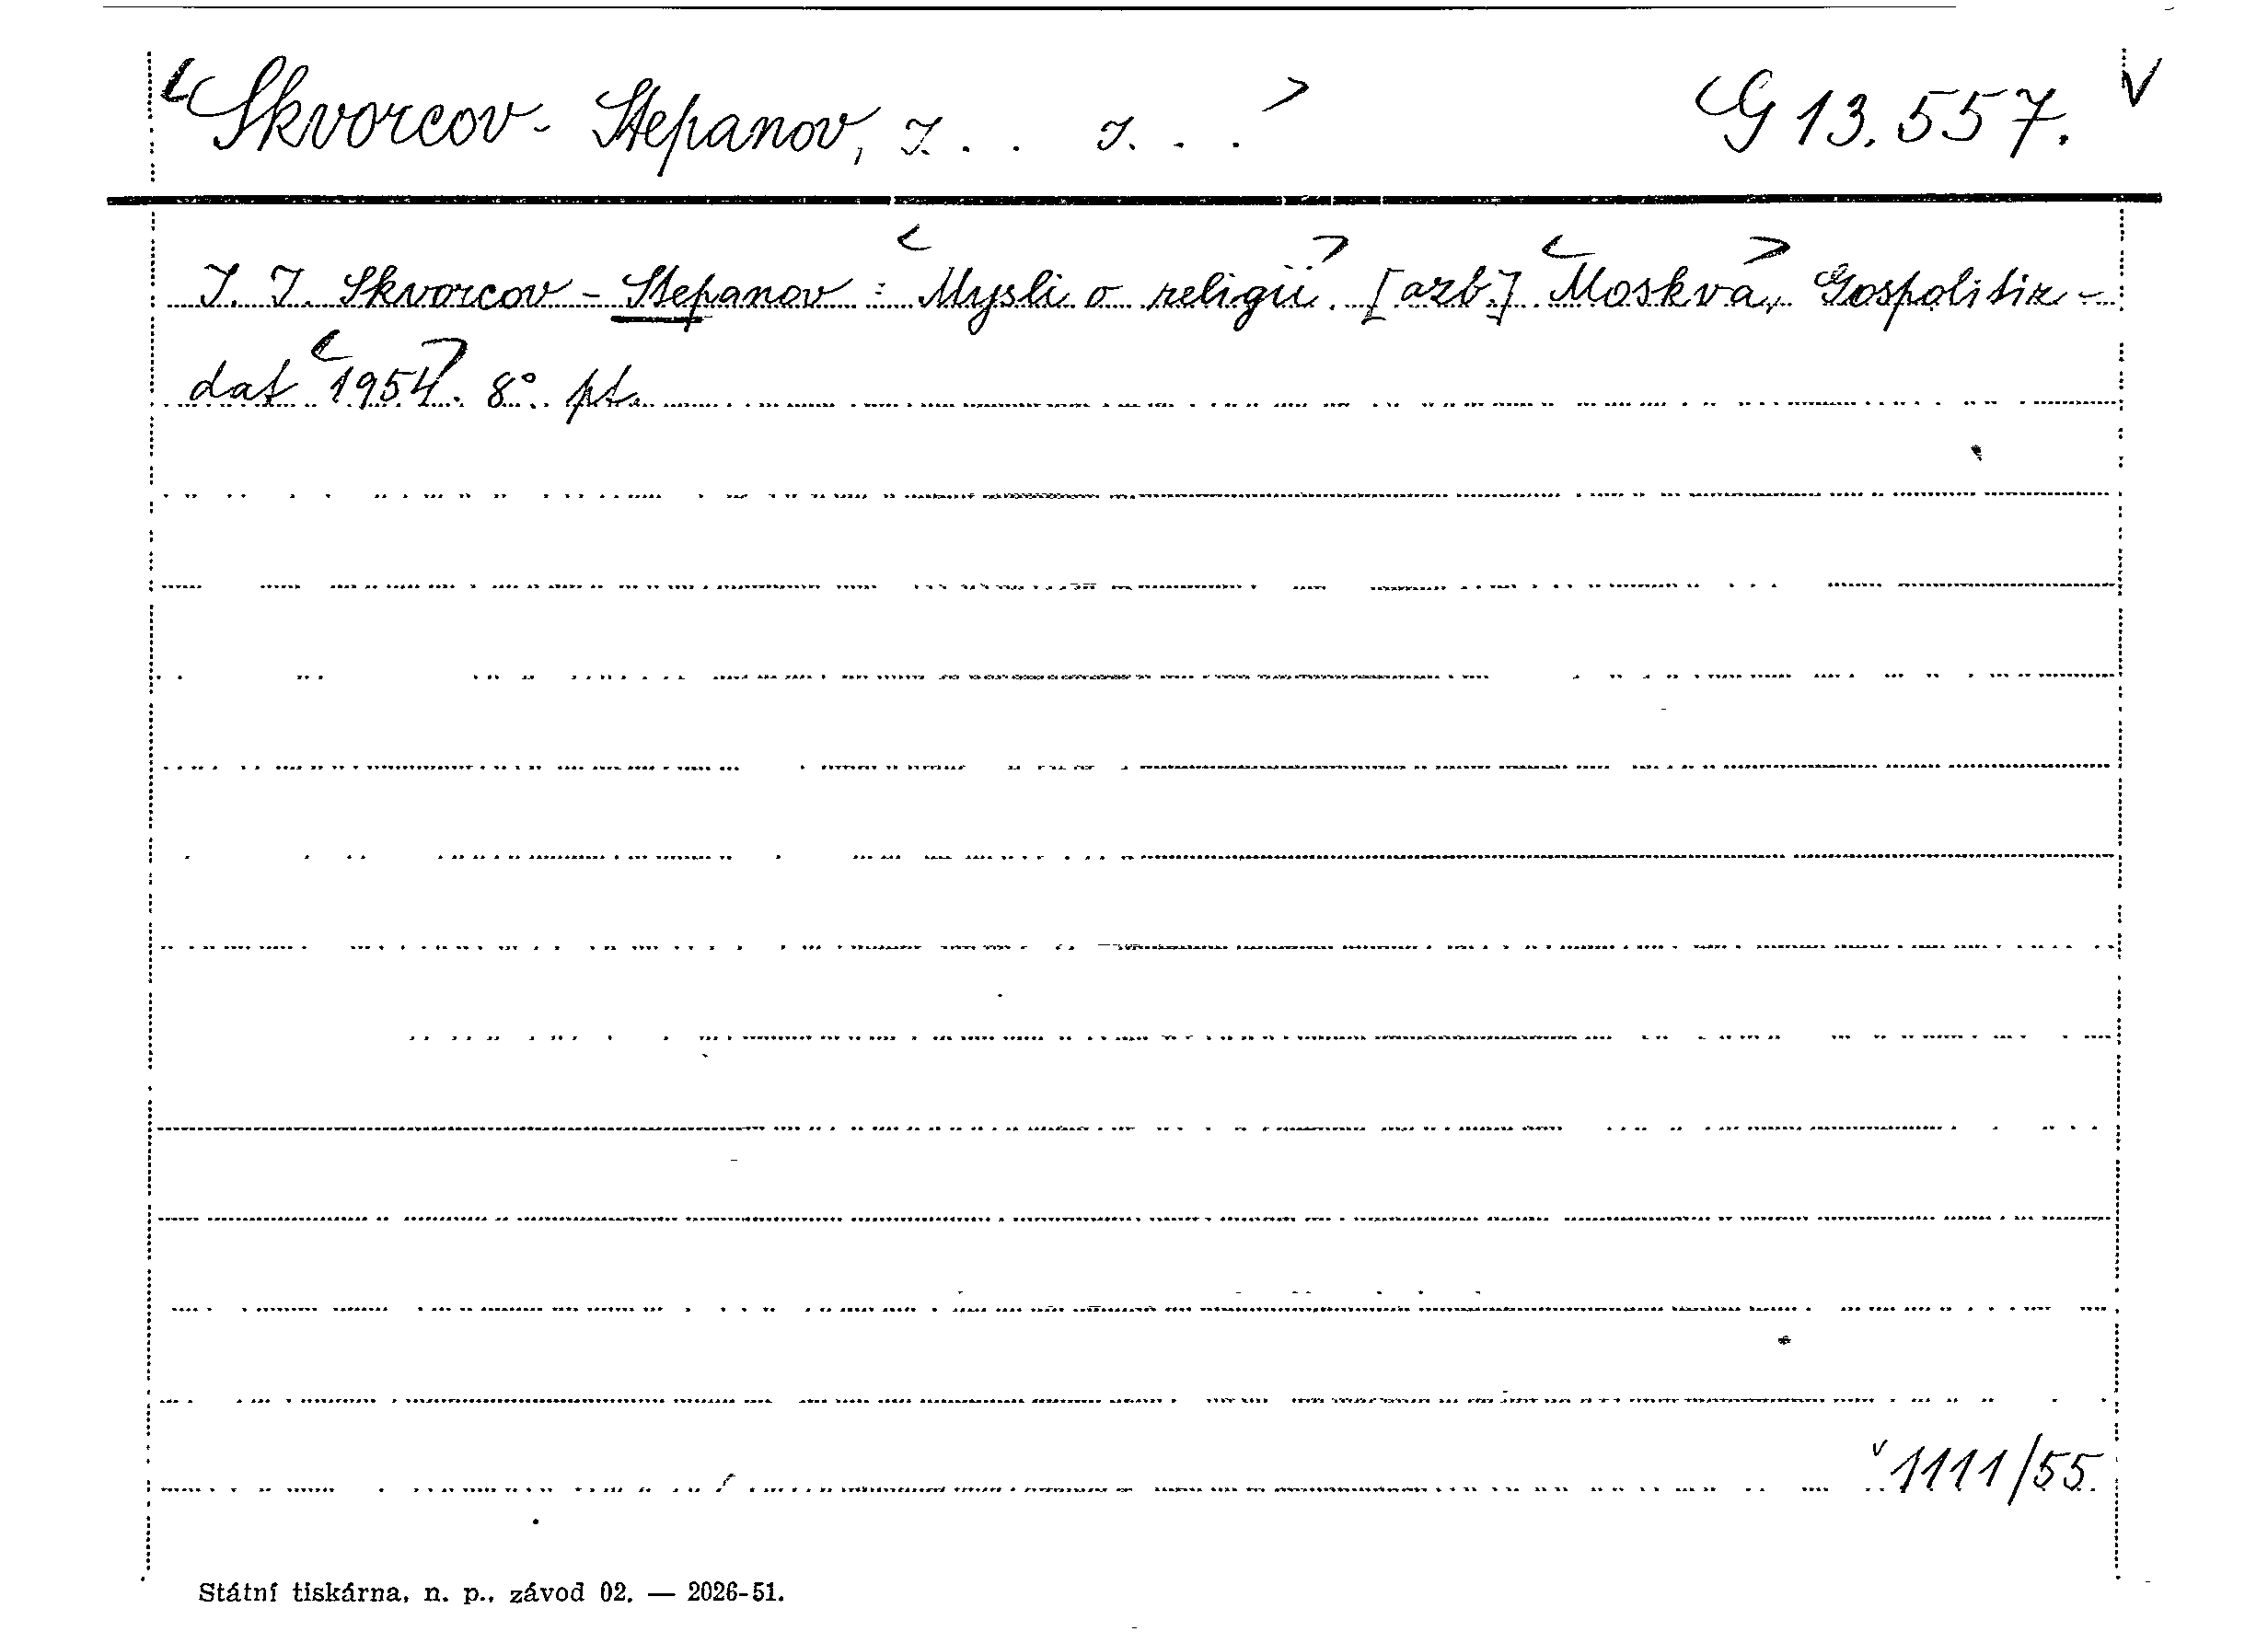 Skvorcov-Stepanov, I. . . I. . . G 13.557.
I. I. Skvorcov-Stepanov: Mysli o religii. [azb.] Moskva, Gospolitiz-
dat 1954. 8° pt.
1111/55.
Státní tiskárna, n. p., závod 02. — 2026-51.